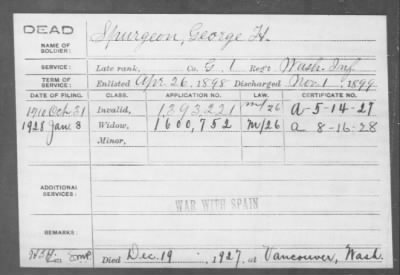 DEAD
NAME OF SOLDIER: Spurgeon, George H.
SERVICE: Late rank, Co. G, 1 Reg't Wash. Inf.
TERM OF SERVICE: Enlisted Apr. 26, 1898 Discharged Nov. 1, 1899
DATE OF FILING. CLASS. APPLICATION NO. LAW. CERTIFICATE NO.
1910 Oct 31 Invalid, 1393221 m/26 A-5-14-27
1928 Jan 3 Widow, 1600,752 m/26 A 8-16-28
Minor,
ADDITIONAL SERVICES:
WAR WITH SPAIN
REMARKS:
Died Dec. 19, 1927, at Vancouver, Wash.